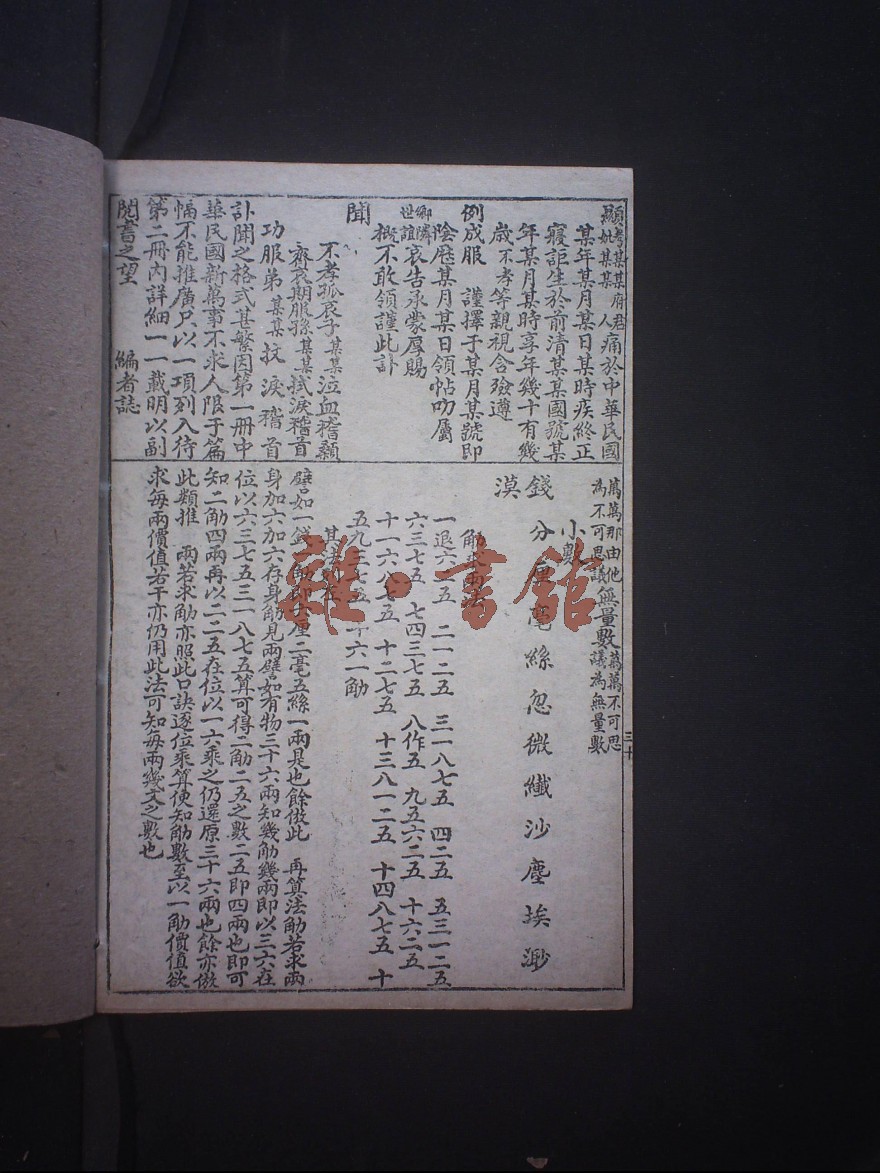 顯考某某府君
顯妣某某　人
痛於中華民國
某年某月某日某時疾終正
寢距生於前清某某國號某
年某月某時享年幾十有幾
歲不孝等親視含殮遵
例成服　謹擇于某月某號即
陰歷某月某日領帖叨屬
鄉隣
世誼
哀告承蒙厚賜
概不敢領謹此訃
聞
不孝孤哀子某某泣血稽顙
齊衰期服孫某某拭淚稽首
功服弟某某抆淚稽首
訃聞之格式甚繁因第一册中
華民國新萬事不求人限于篇
幅不能推廣只以一項列入待
第二冊內詳細一一載明以副
閱書之望　編者誌
萬萬那由他
為不可思議
無量數
萬萬不可思
議為無量數
三十
小數
錢　分　厘　毫　絲　忽　微　纖　沙　塵　埃　渺
漠
觔
一退六二五　二一二五　三一八七五　四二五　五三一二五
六三七五　七四三七五　八作五　九五六二五　十六二五
十一六八七五　十二七五　十三八一二五　十四八七五　十
五九三七五　十六一觔
其法
譬如一錢　觔即　厘二毫五絲一兩是也餘倣此　再算法觔若求兩
身加六加六存身觔見兩譬如有物三十六兩知幾觔幾兩即以三六在
位以六三七五三一八七五算可得二觔二五之數二五即四兩也即可
知二觔四兩再以二二五在位以一六乘之仍還原三十六兩也餘亦倣
此類推　兩若求觔亦照此口訣逐位乘算使知觔數至以一觔價值欲
求每兩價值若干亦仍用此法可知每兩幾文之數也
雜·書館